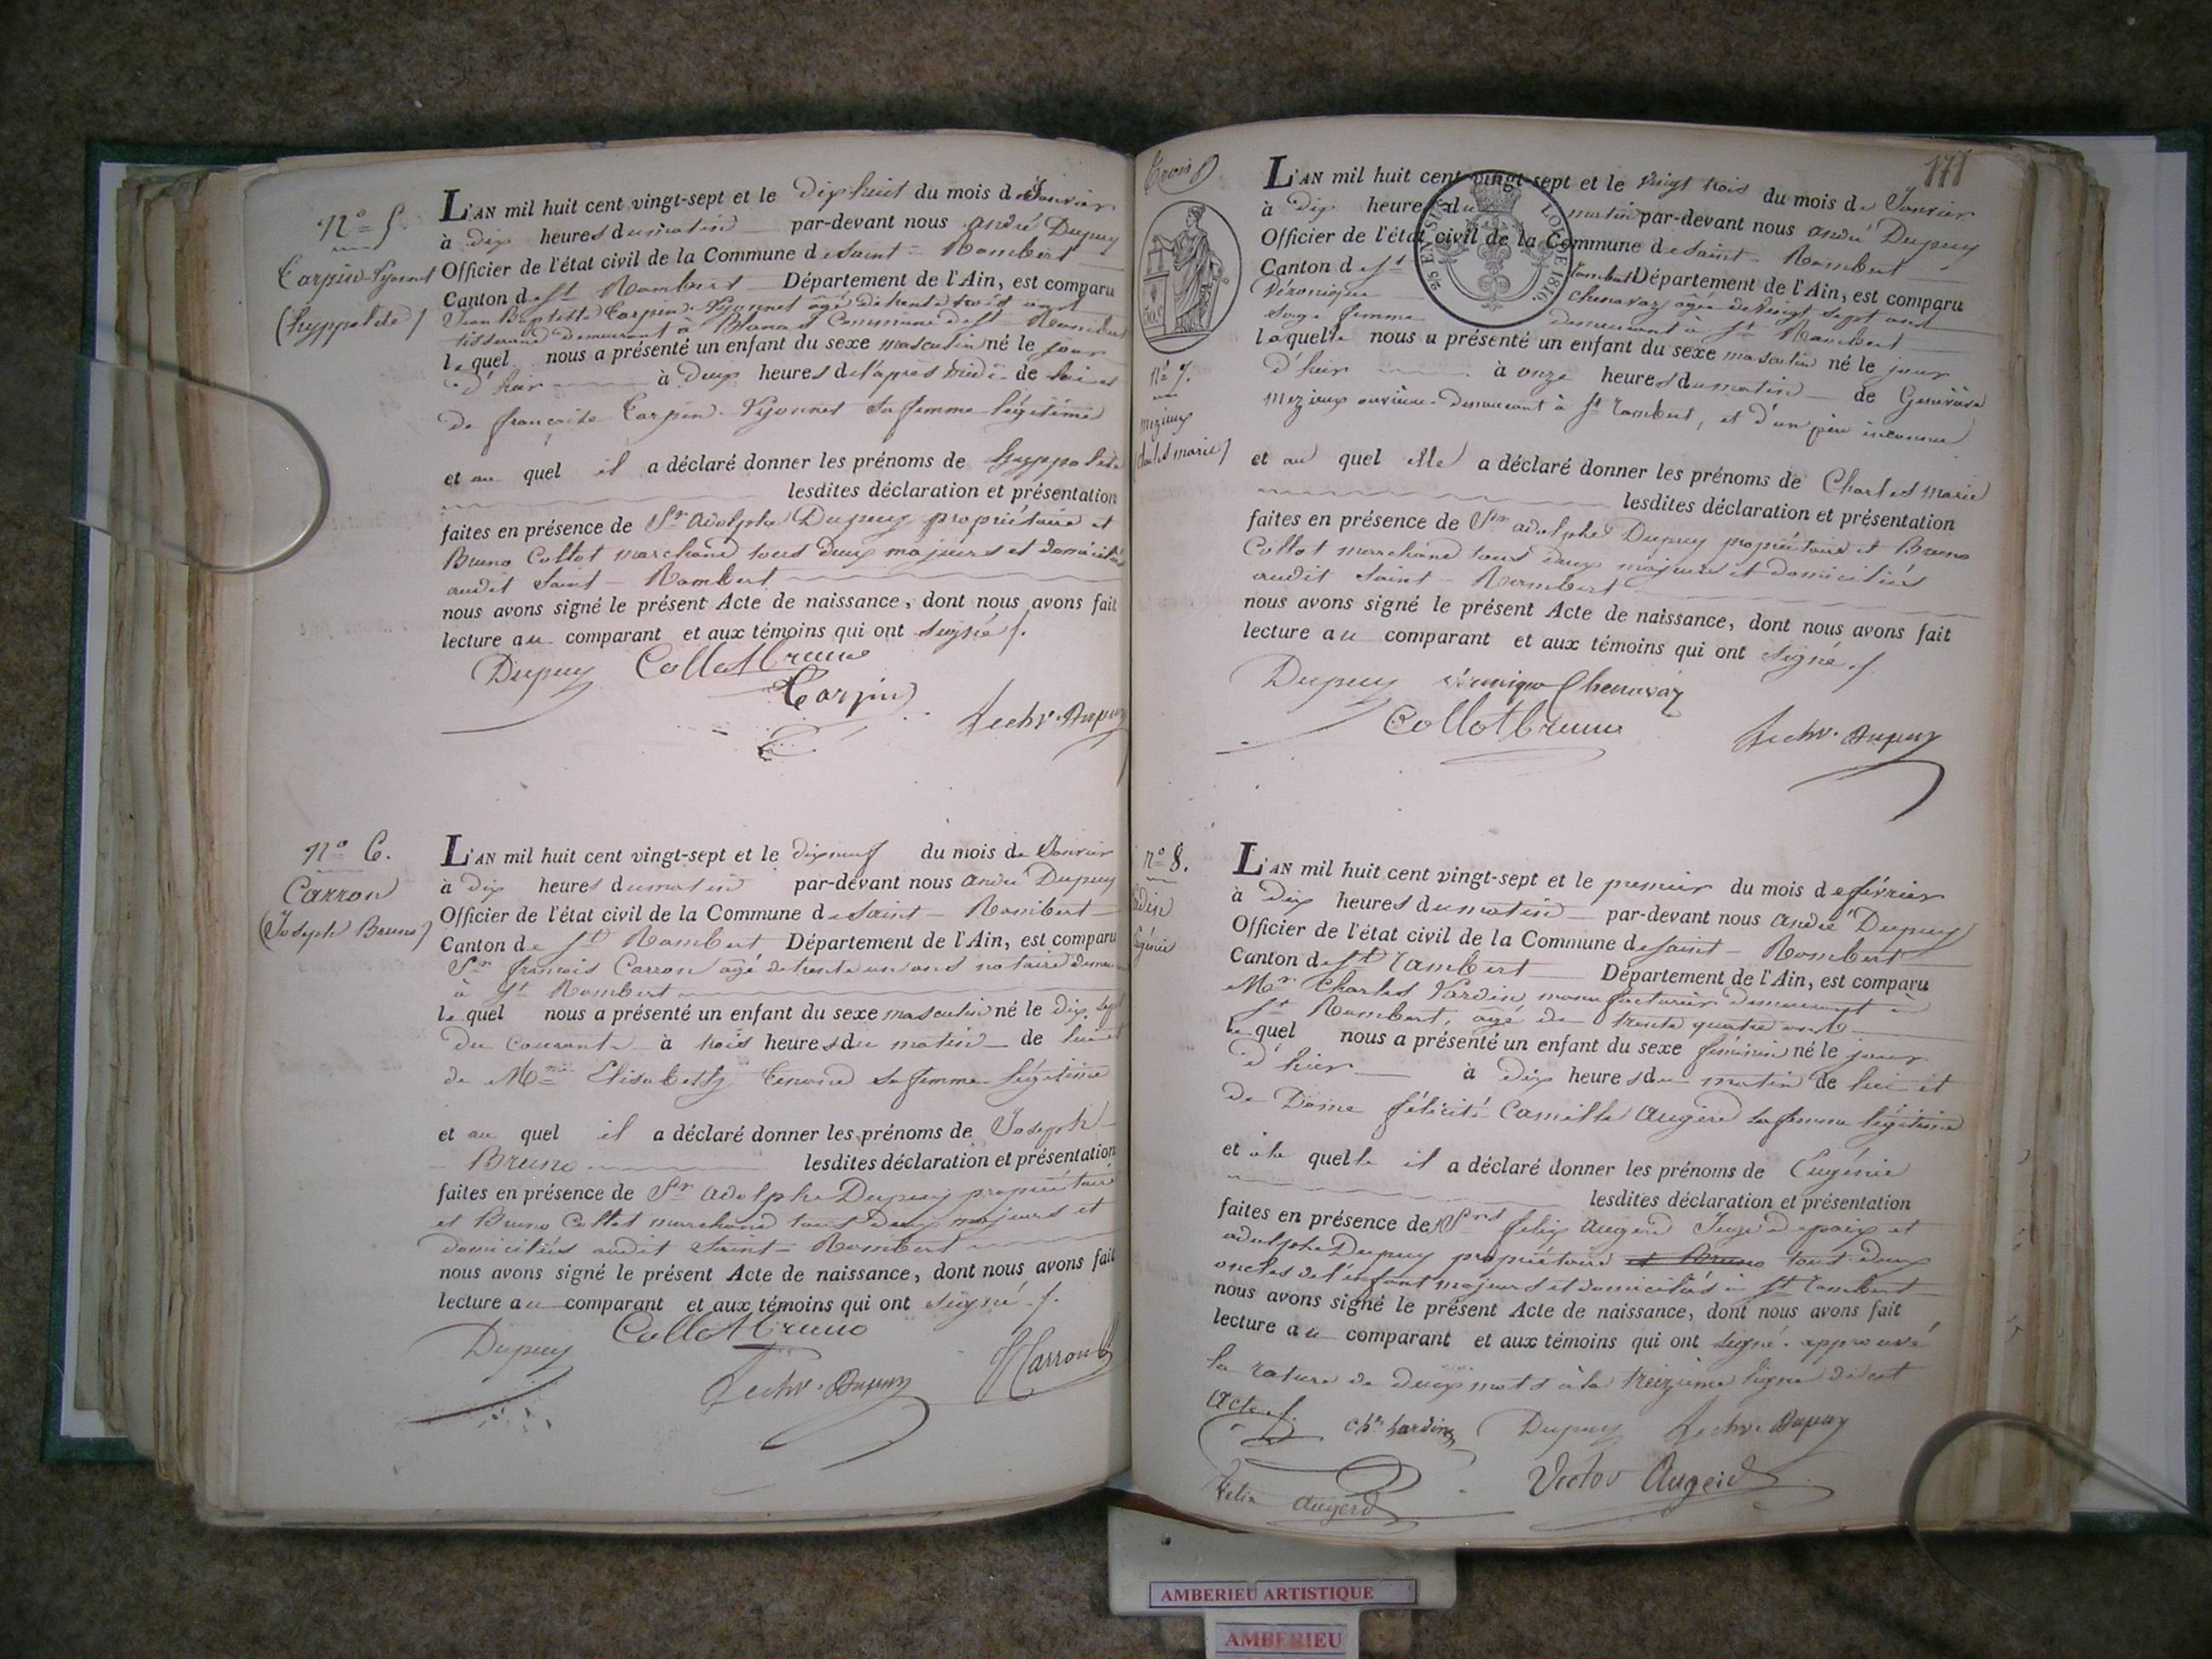 N° 5
Carpin-Vyonnet
(hyppolite)
L'AN mil huit cent vingt-sept et le dix huit du mois de Janvier
à dix heures du matin par-devant nous andré Dupuy
Officier de l'état civil de la Commune de Saint-Rambert
Canton de St Rambert Département de l'Ain, est comparu
Jean Baptiste Carpin-Vyonnet âgé de trente trois ans
tisserand demeurant à Blanas Commune de St Rambert
lequel nous a présenté un enfant du sexe masculin né le jour
d'hier à deux heures de l'apres midi de lui et
de françoise Carpin-Vyonnet sa femme légitime
et au quel il a déclaré donner les prénoms de hyppolite
lesdites déclaration et présentation
faites en présence de Sr adolphe Dupuy propriétaire et
Bruno Collot marchand tous deux majeurs et domiciliés
audit Saint-Rambert
nous avons signé le présent Acte de naissance, dont nous avons fait
lecture au comparant et aux témoins qui ont signé ./.
Dupuy Collot bruno
Carpin
Dupuy
N° 6.
Carron
(Joseph Bruno)
L'AN mil huit cent vingt-sept et le dix neuf du mois de Janvier
à dix heures du matin par-devant nous andré Dupuy
Officier de l'état civil de la Commune de Saint-Rambert
Canton de St Rambert Département de l'Ain, est comparu
Sr françois Carron âgé de trente un ans notaire
à St Rambert
lequel nous a présenté un enfant du sexe masculin né le dix sept
du courant à trois heures du matin de lui et
de Mme Elisabeth sa femme légitime
et au quel il a déclaré donner les prénoms de Joseph
Bruno lesdites déclaration et présentation
faites en présence de Sr adolphe Dupuy propriétaire
et Bruno Collot marchand tous deux majeurs et
domiciliés audit Saint-Rambert
nous avons signé le présent Acte de naissance, dont nous avons fait
lecture au comparant et aux témoins qui ont signé ./.
Dupuy Collot bruno
Dupuy Carron
171
Trois
N° 7.
mezieux
charles marie)
L'AN mil huit cent vingt-sept et le vingt trois du mois de Janvier
à dix heures du matin par-devant nous andré Dupuy
Officier de l'état civil de la Commune de Saint-Rambert
Canton de St Rambert Département de l'Ain, est comparu
Véronique Chenavaz âgée de vingt sept ans
sage femme demeurant à St Rambert
laquelle nous a présenté un enfant du sexe masculin né le jour
d'hier à onze heures du matin de Geneviève
Mezieux ouvrière demeurant à St Rambert, et d'un père inconnu
et au quel elle a déclaré donner les prénoms de Charles marie
lesdites déclaration et présentation
faites en présence de Srs adolphe Dupuy propriétaire et Bruno
Collot marchand tous deux majeurs et domiciliés
audit Saint-Rambert
nous avons signé le présent Acte de naissance, dont nous avons fait
lecture au comparant et aux témoins qui ont signé ./.
Dupuy véronique Chenavaz
Collot bruno Dupuy
LOI DE 1816.
N° 8.
Eugénie
L'AN mil huit cent vingt-sept et le premier du mois de février
à dix heures du matin par-devant nous andré Dupuy
Officier de l'état civil de la Commune de Saint-Rambert
Canton de St Rambert Département de l'Ain, est comparu
Mr Charles Sardin manufacturier demeurant à
St Rambert, âgé de trente quatre ans
lequel nous a présenté un enfant du sexe féminin né le jour
d'hier à dix heures du matin de lui et
de Dame félicité Camille Augerd sa femme légitime
et à la quelle il a déclaré donner les prénoms de Eugénie
lesdites déclaration et présentation
faites en présence de Srs felix Augerd Juge de paix et
adolphe Dupuy propriétaire et Bruno tous deux
oncles de l'enfant majeurs et domiciliés à St Rambert
nous avons signé le présent Acte de naissance, dont nous avons fait
lecture au comparant et aux témoins qui ont signé. approuvé
la rature de deux mots à la treizième ligne de cet
acte ./.
Chs Sardin Dupuy Dupuy
Felix Augerd Victor Augerd
AMBERIEU ARTISTIQUE
AMBERIEU